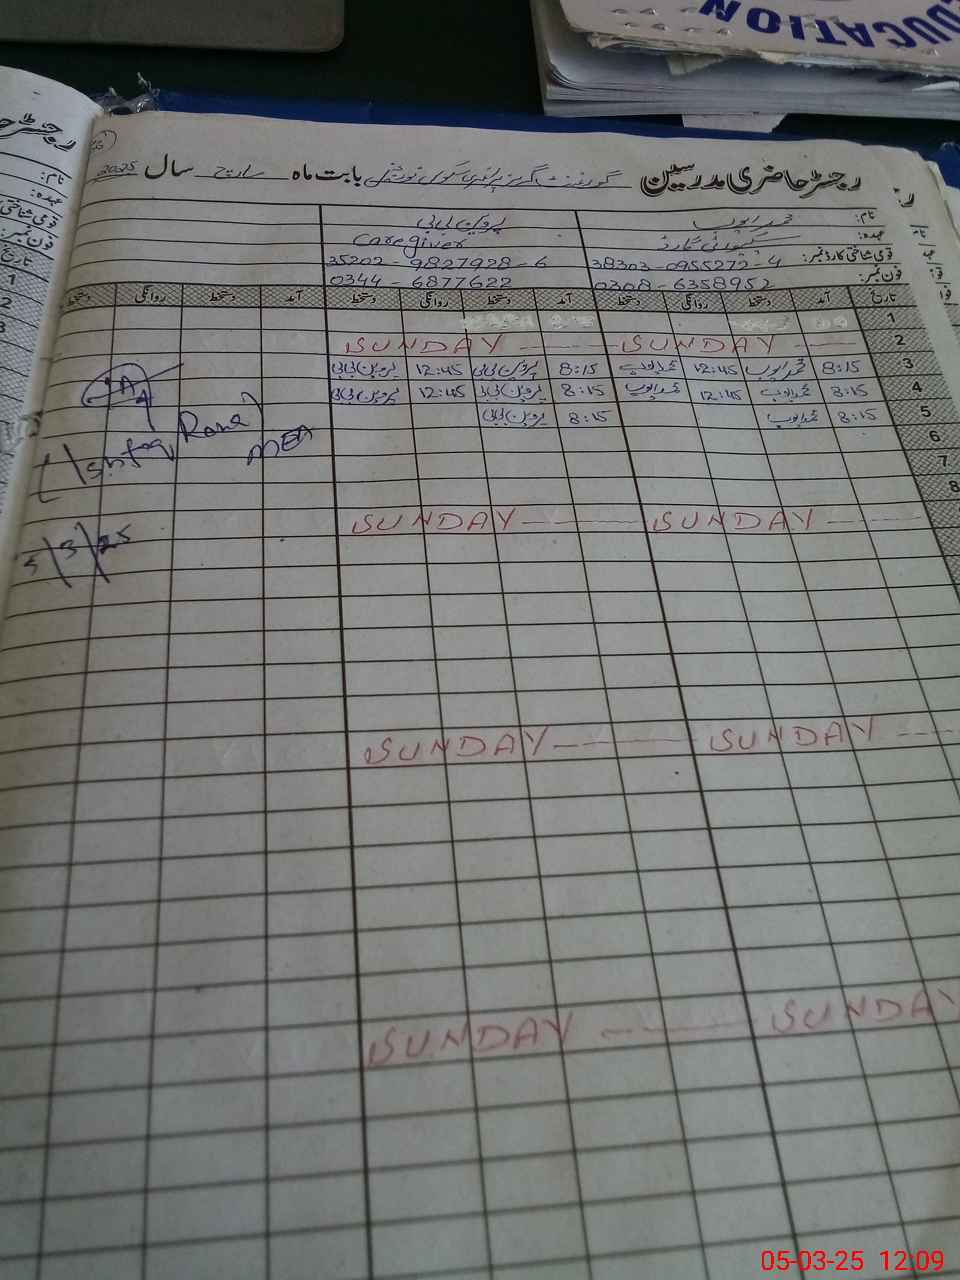 EDUCATION
رجسٹر حاضری مدرسین گورنمنٹ گرلز پرائمری سکول بابت ماہ مارچ سال 2025
نام: محمد ایوب پروین بی بی
عہدہ: سکیورٹی گارڈ Caregiver
قومی شناختی کارڈ نمبر: 38303-0955272-4 35202-9827928-6
فون نمبر: 0308-6358952 0344-6877622
تاریخ آمد دستخط روانگی دستخط آمد دستخط روانگی دستخط آمد دستخط روانگی دستخط
1
2 SUNDAY SUNDAY
3 8:15 محمد ایوب 12:45 محمد ایوب 8:15 پروین بی بی 12:45 پروین بی بی
4 8:15 محمد ایوب 12:45 محمد ایوب 8:15 پروین بی بی 12:45 پروین بی بی
5 8:15 محمد ایوب 8:15 پروین بی بی
6
7
8
(Ishtaq Rana)
MEA
5/3/25
SUNDAY SUNDAY
SUNDAY SUNDAY
SUNDAY SUNDAY
05-03-25 12:09